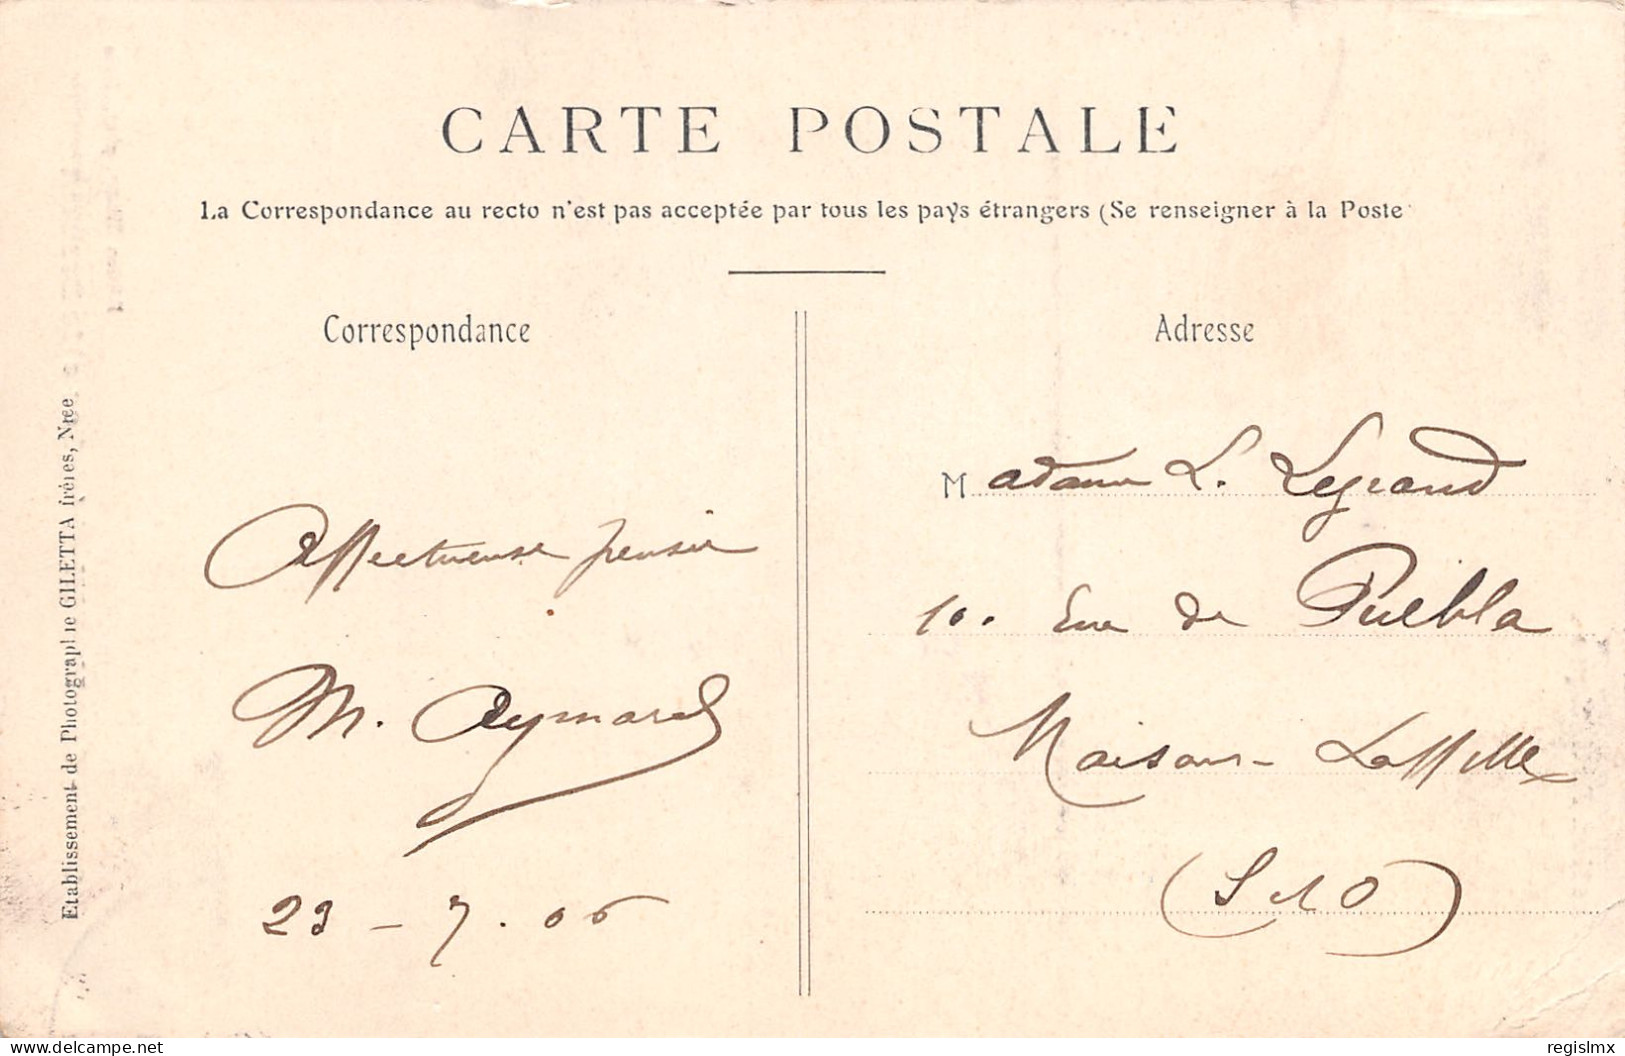 CARTE POSTALE
La Correspondance au recto n'est pas acceptée par tous les pays étrangers (Se renseigner à la Poste
Correspondance
Affectueuse pensée
M. Aymard
23 - 7. 06
Adresse
Madame L. Legrand
10. Rue de Puebla
Maisons-Laffitte
(S et O)
Etablissement de Photographie GILETTA frères, Nice
delcampe.net
regislmx